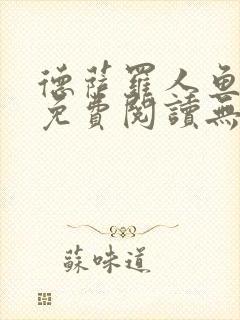 德薩羅人魚
免費閱讀無
蘇味道